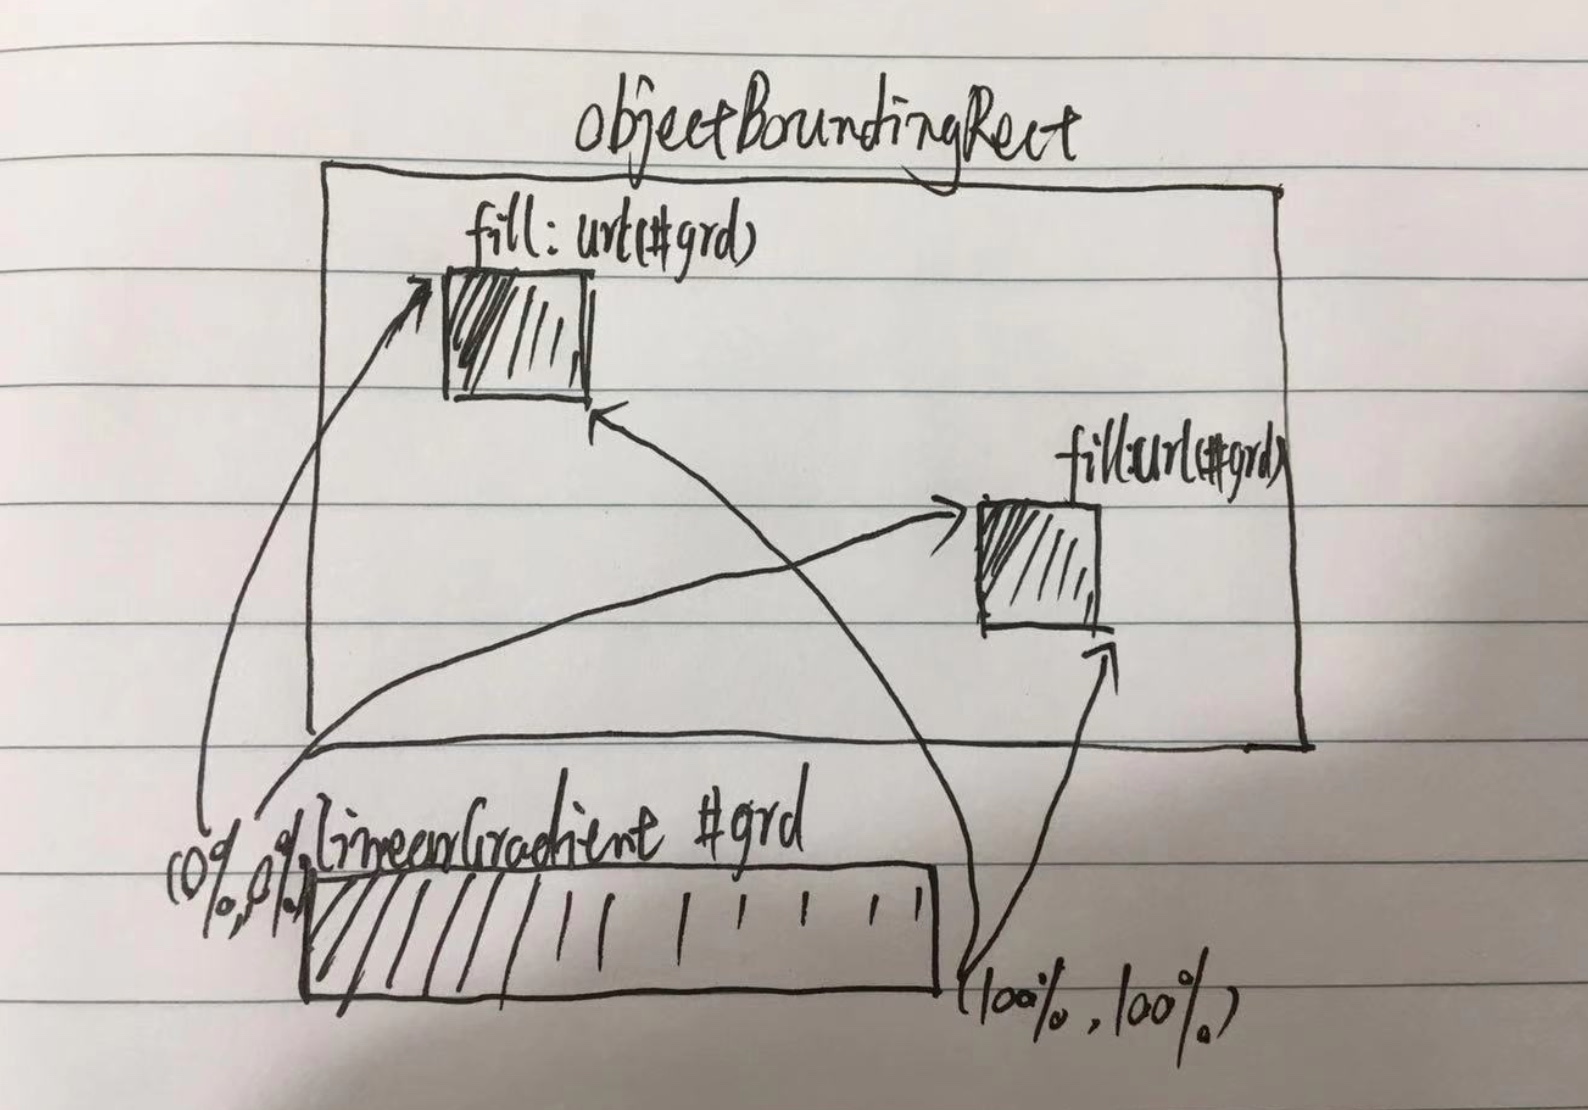 objectBoundingRect
fill: url(#grd)
fill:url(#grd)
linearGradient #grd
(0%,0%)
(100%, 100%)